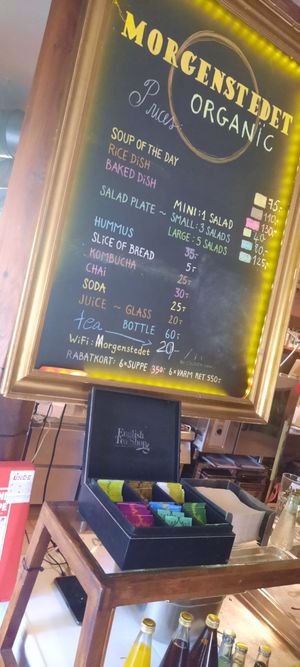 MORGENSTEDET
ORGANIC
Prices:
SOUP OF THE DAY 75-
RICE DISH 110-
BAKED DISH 130-
SALAD PLATE ~ MINI: 1 SALAD 40-
SMALL: 3 SALADS 80-
LARGE: 5 SALADS 125-
HUMMUS 35-
SLICE OF BREAD 5-
KOMBUCHA 25-
CHAI 30-
SODA 25-
JUICE ~ GLASS 20-
BOTTLE 60-
tea 20-
WiFi: Morgenstedet
RABATKORT: 6×SUPPE 350,- 6×VARM RET 550,-
English
Tea Shop